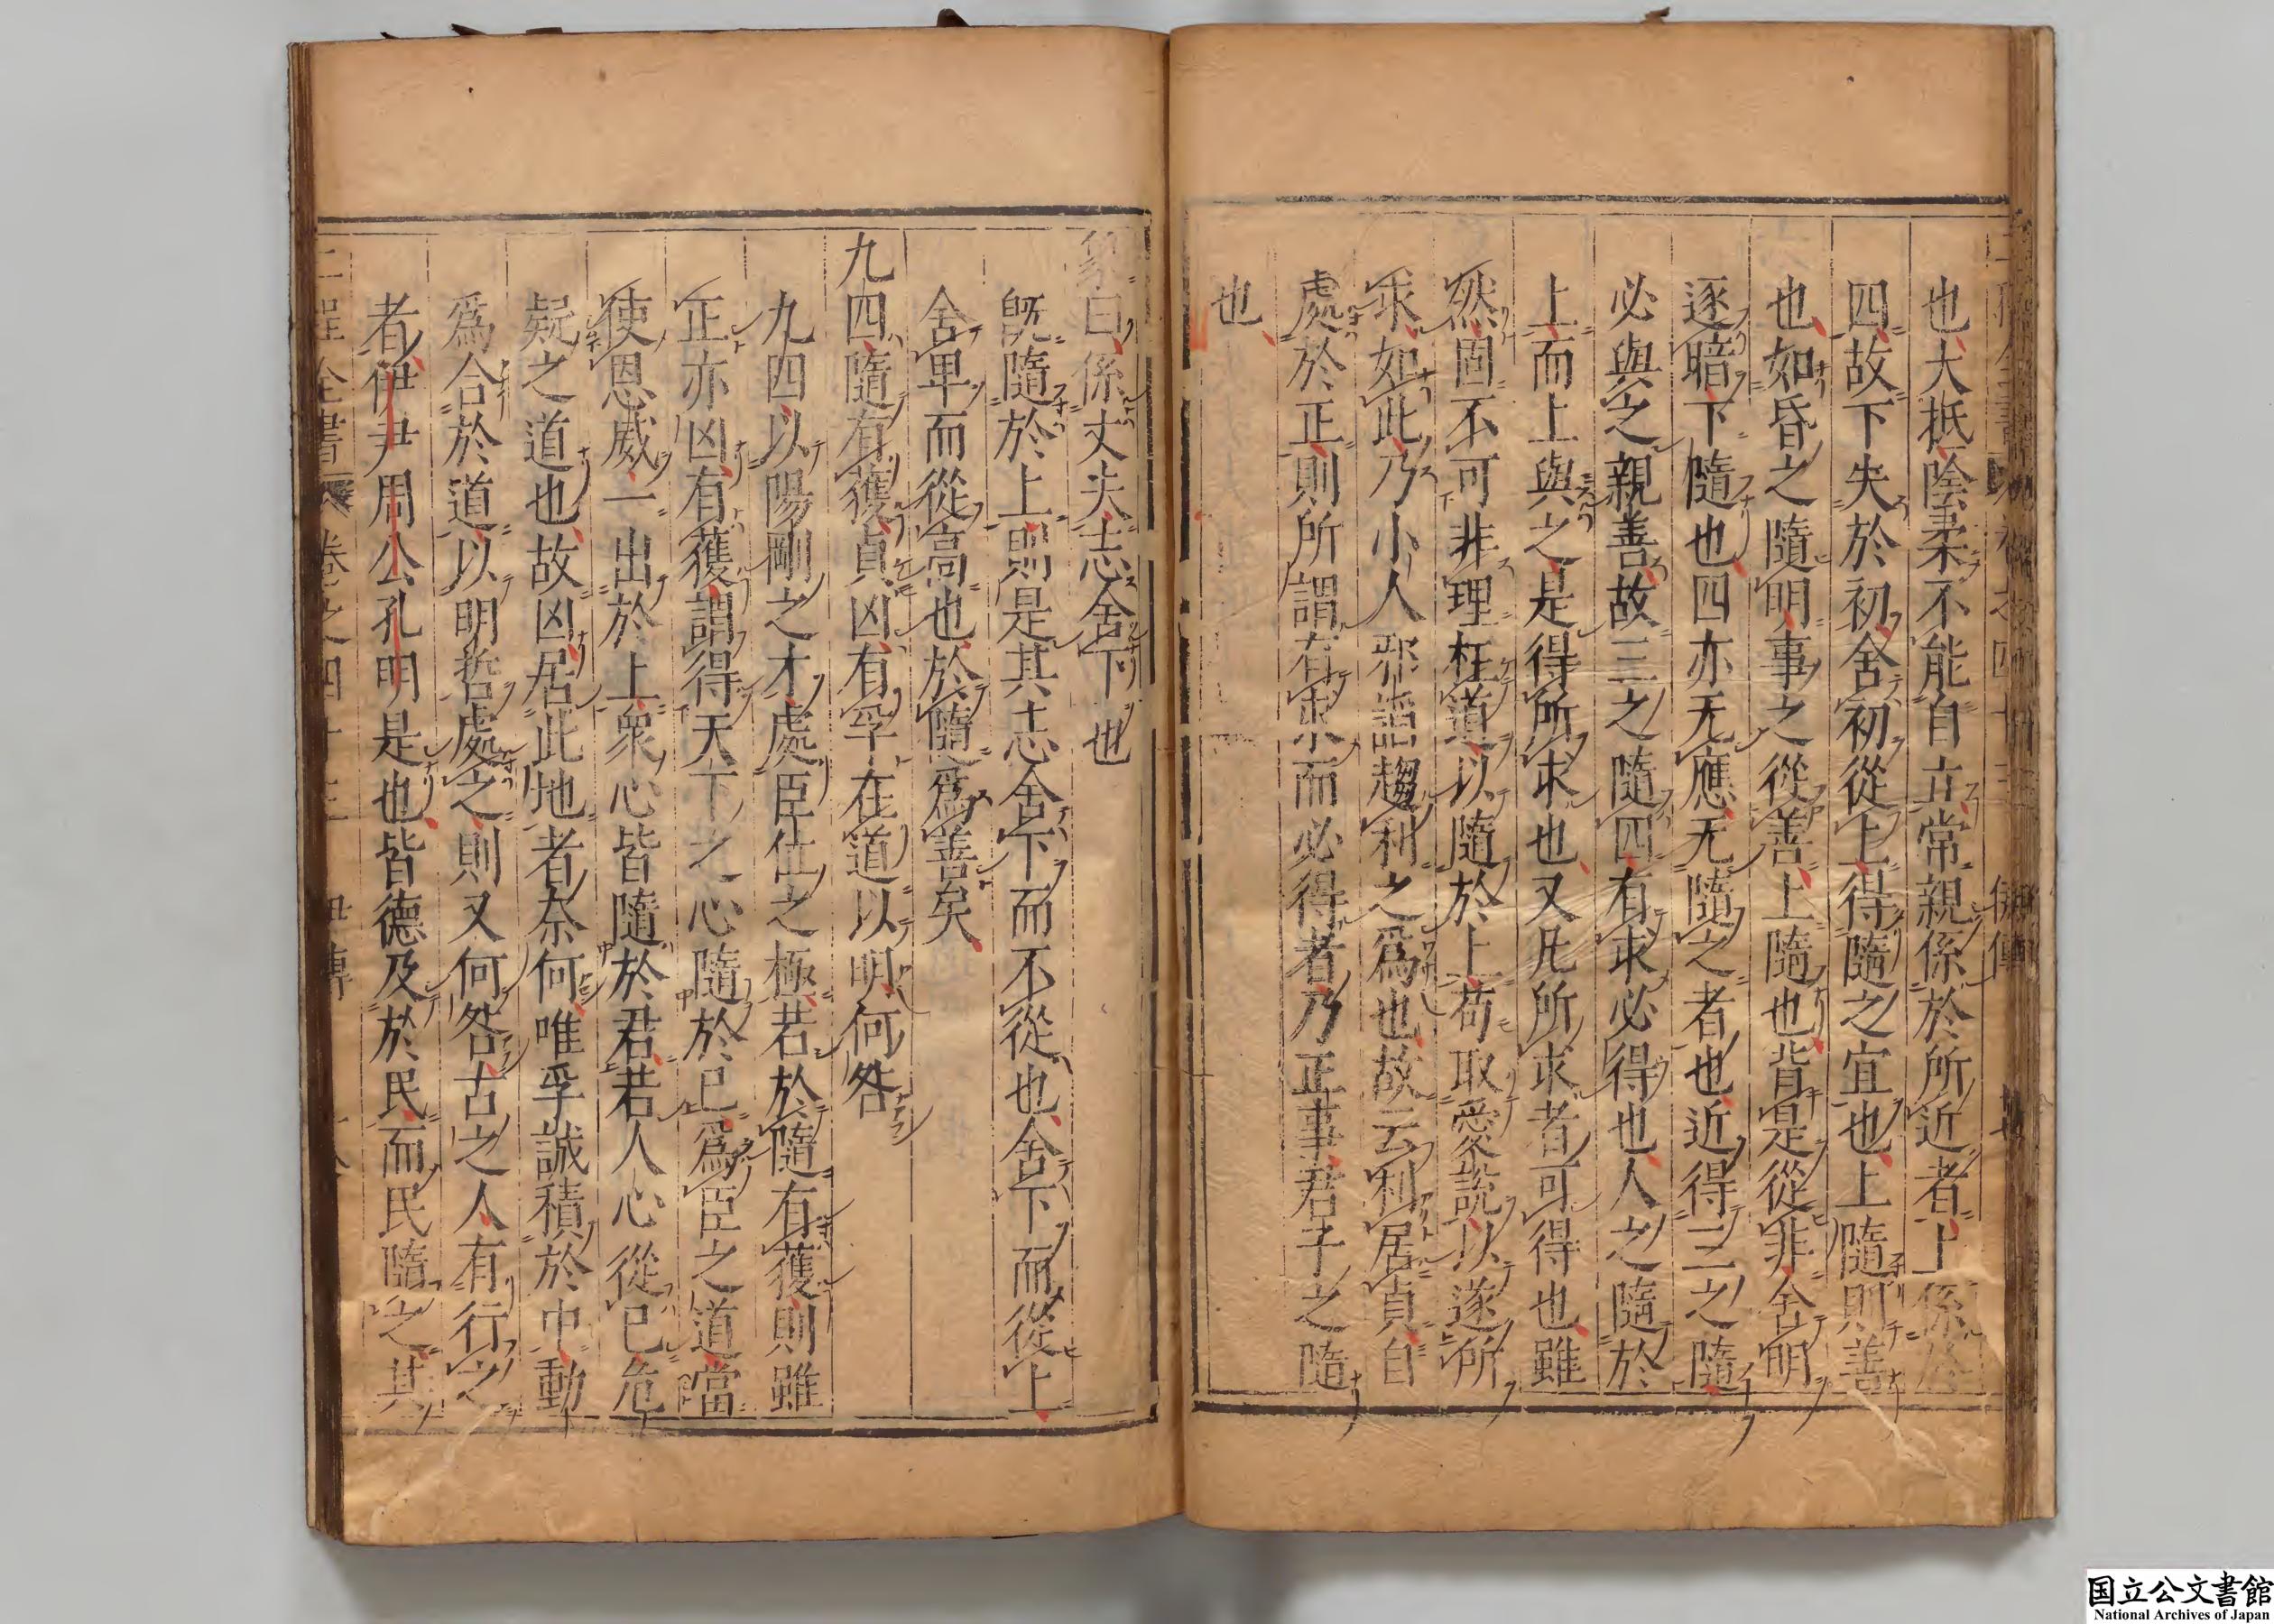 也大抵陰柔不能自立常親係於所近者上係於
四故下失於初舍初從上得隨之宜也上隨則善
也如昏之隨明事之從善上隨也背是從非舍明
逐暗下隨也四亦无應无隨之者也近得三之隨
必與之親善故三之隨四有求必得也人之隨於
上而上與之是得所求也又凡所求者可得也雖
然固不可非理枉道以隨於上苟取愛說以遂所
求如此乃小人邪諂趨利之爲也故云利居貞自
處於正則所謂有求而必得者乃正事君子之隨
也
象曰係丈夫志舍下也
旣隨於上則是其志舍下而不從也舍下而從上
舍卑而從高也於隨爲善矣
九四隨有獲貞凶有孚在道以明何咎
九四以陽剛之才處臣位之極若於隨有獲則雖
正亦凶有獲謂得天下之心隨於己爲臣之道當
使恩威一出於上衆心皆隨於君若人心從己危
疑之道也故凶居此地者奈何唯孚誠積於中動
爲合於道以明哲處之則又何咎古之人有行之
者伊尹周公孔明是也皆德及於民而民隨之其
二程全書 卷之四十
國立公文書館
National Archives of Japan